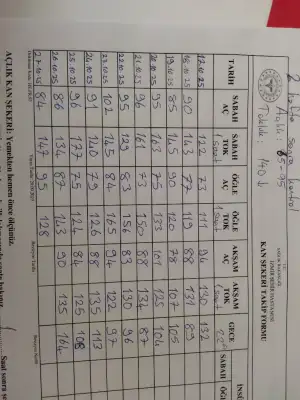 2 hafta sonra kontrol
Açlık: 65-95
Tokluk: 140 ↓
KAN ŞEKERİ TAKİP FORMU
TARİH SABAH AÇ SABAH TOK 1 saat ÖĞLE AÇ ÖĞLE TOK 1 saat AKŞAM AÇ AKŞAM TOK 1 saat GECE SABAH
17.10.25 122 73 111 94 130 132
18.10.25 90 143 77 119 88 131 89
19.10.25 85 145 90 120 78 107 105
20.10.25 95 163 75 133 101 125 104
21.10.25 96 161 73 150 88 134 87
22.10.25 95 129 83 156 83 130 96
23.10.25 102 145 84 165 94 122 97
24.10.25 91 140 79 126 88 135 113
25.10.25 96 177 75 124 84 125 108
26.10.25 86 134 87 143 90 135 164
27.10.25 84 147 95 128
AÇLIK KAN ŞEKERİ: Yemekten hemen önce ölçünüz.